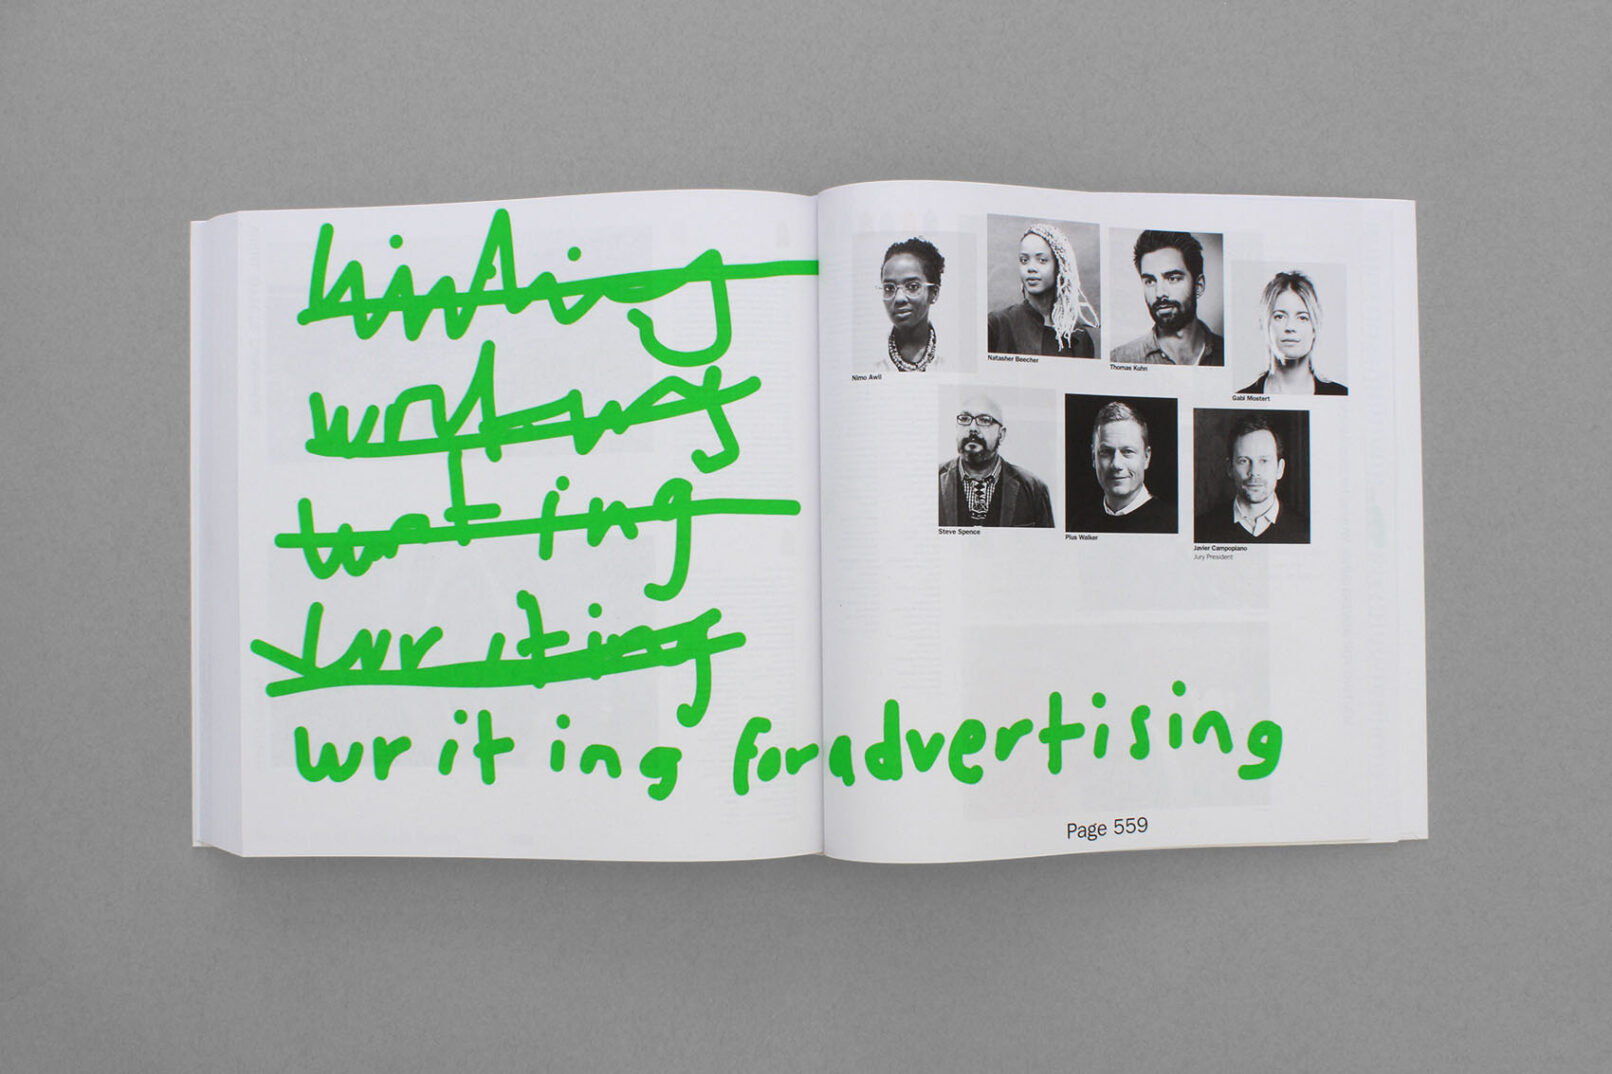 writing for advertising
Nimo Awil
Natasher Beecher
Thomas Kuhn
Gabi Mostert
Steve Spence
Pius Walker
Javier Campopiano
Jury President
Page 559